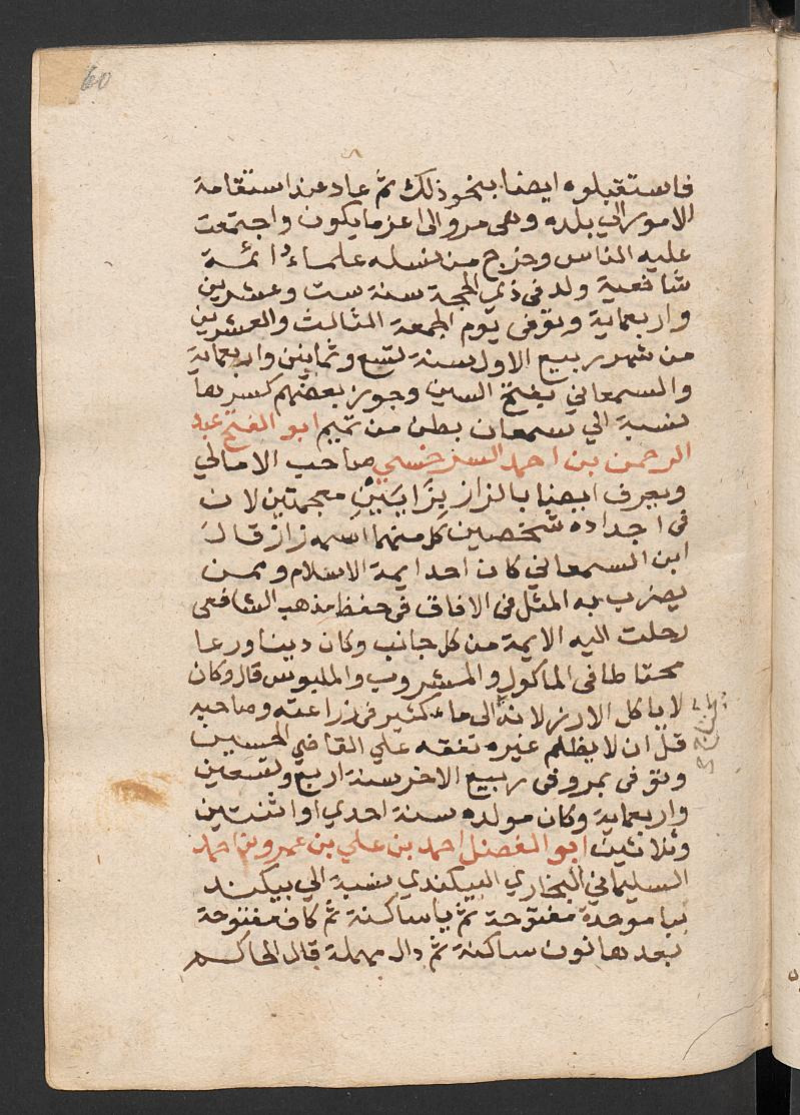 60
فاستقبلوه ايضا بنحو ذلك ثم عاد عند استقامة
الامور الي بلده وهى مرو الى اعز ما يكون واجتمعت
عليه الناس وخرج من نسله علماء ائمة
شافعية ولد فى ذي الحجة سنة ست وعشرين
واربعماية وتوفى يوم الجمعة الثالث والعشرين
من شهر ربيع الاول سنة تسع وثمانين واربعماية
والسمعاني بفتح السين وجوز بعضهم كسرها
نسبة الي سمعان بطن من تميم ابو الفتح عبد
الرحمن بن احمد السرخسي صاحب الامالي
ويعرف ايضا بالزاز بزايين معجمتين لان
فى اجداده شخصين كل منهما اسمه زاز قال
ابن السمعاني كان احد ايمة الاسلام وممن
يضرب به المثل فى الافاق فى حفظ مذهب الشافعى
رحلت اليه الايمة من كل جانب وكان دينا ورعا
محتاطا فى الماكول والمشروب والملبوس قال وكان
لا ياكل الارز لانه الى ماء كثير فى زراعته وصاحبه
قل ان لا يظلم غيره تفقه علي القاضي الحسين
وتوفى بمرو فى ربيع الاخر سنة اربع وتسعين
واربعماية وكان مولده سنة احدي او اثنتين
وثلاثين ابو الفضل احمد بن علي بن عمرو بن احمد
السليماني البخاري البيكندي نسبة الي بيكند
بيا موحدة مفتوحة ثم يا ساكنة ثم كاف مفتوحة
بعدها نون ساكنة ثم دال مهملة قال الحاكم